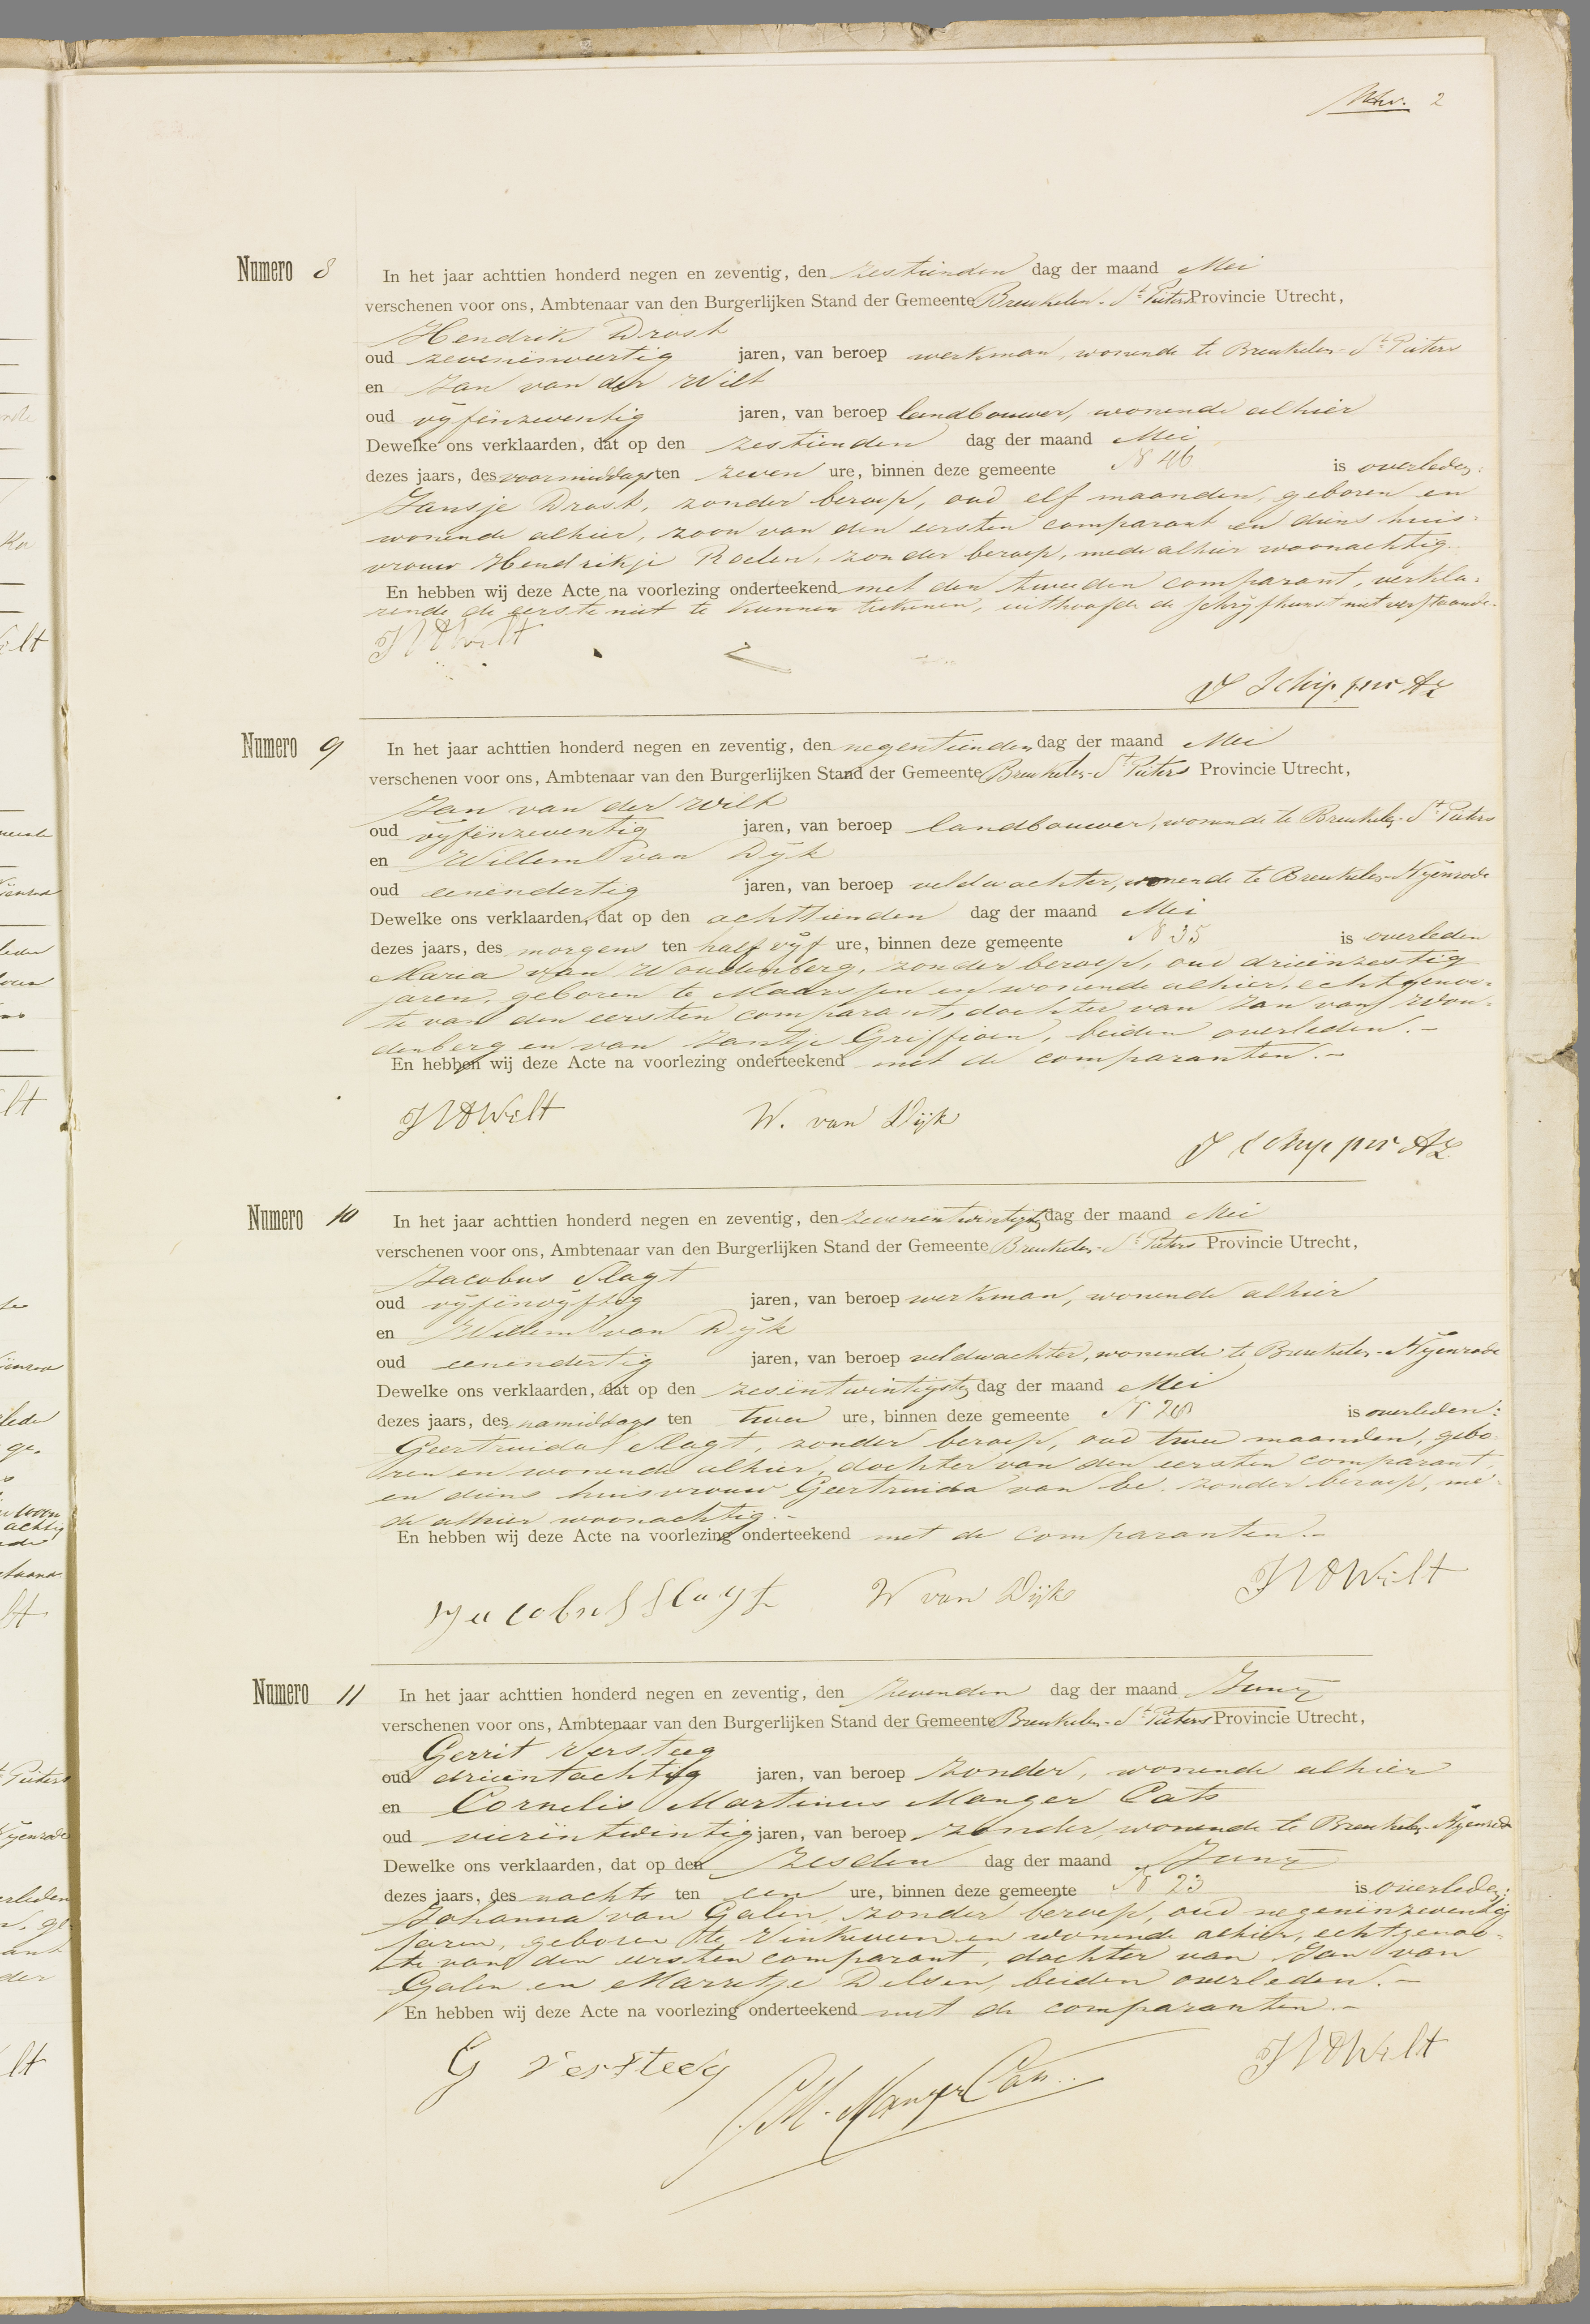 2
Numero 8
In het jaar achttien honderd negen en zeventig, den zestienden dag der maand Mei
verschenen voor ons, Ambtenaar van den Burgerlijken Stand der Gemeente Breukelen-St Pieters Provincie Utrecht,
Hendrik Drost
oud zevenënveertig jaren, van beroep werkman, wonende te Breukelen-St Pieters
en Jan van der Wilt
oud vyfënzeventig jaren, van beroep landbouwer, wonende alhier
Dewelke ons verklaarden, dat op den zestienden dag der maand Mei
dezes jaars, des voormiddags ten zeven ure, binnen deze gemeente N 46 is overleden:
Jansje Drost, zonder beroep, oud elf maanden, geboren en
wonende alhier, zoon van den eersten comparant en diens huis-
vrouw Hendrikje Roelen, zonder beroep, mede alhier woonachtig.
En hebben wij deze Acte na voorlezing onderteekend met den tweeden comparant, verkla-
rende de eerste niet te kunnen teekenen, uithoofde de schryfkunst niet verstaande.
JVDWilt
J Schipper Az
Numero 9
In het jaar achttien honderd negen en zeventig, den negentienden dag der maand Mei
verschenen voor ons, Ambtenaar van den Burgerlijken Stand der Gemeente Breukelen-St Pieters Provincie Utrecht,
Jan van der Wilt
oud vyfënzeventig jaren, van beroep landbouwer, wonende te Breukelen-St Pieters
en Willem van Dyk
oud eenëndertig jaren, van beroep veldwachter, wonende te Breukelen-Nyenrode
Dewelke ons verklaarden, dat op den achttienden dag der maand Mei
dezes jaars, des morgens ten half vyf ure, binnen deze gemeente N 35 is overleden
Maria van Woudenberg, zonder beroep, oud drieënzestig
jaren, geboren te Maarssen en wonende alhier, echtgenoo-
te van den eersten comparant, dochter van Jan van Wou-
denberg en van Jantje Griffioen, beiden overleden.-
En hebben wij deze Acte na voorlezing onderteekend met de comparanten.-
JVDWilt W. van Dijk
J Schipper Az
Numero 10
In het jaar achttien honderd negen en zeventig, den zevenëntwintigsten dag der maand Mei
verschenen voor ons, Ambtenaar van den Burgerlijken Stand der Gemeente Breukelen-St Pieters Provincie Utrecht,
Jacobus Slagt
oud vyfënvyftig jaren, van beroep werkman, wonende alhier
en Willem van Dyk
oud eenëndertig jaren, van beroep veldwachter, wonende te Breukelen-Nyenrode
Dewelke ons verklaarden, dat op den zesëntwintigsten dag der maand Mei
dezes jaars, des namiddags ten twee ure, binnen deze gemeente N 28 is overleden:
Geertruida Slagt, zonder beroep, oud twee maanden, gebo-
ren en wonende alhier, dochter van den eersten comparant,
en diens huisvrouw Geertruida van Ee, zonder beroep, me-
de alhier woonachtig.-
En hebben wij deze Acte na voorlezing onderteekend met de comparanten.-
Jacobus Slagt W van Dijk JVDWilt
Numero 11
In het jaar achttien honderd negen en zeventig, den zevenden dag der maand Juny
verschenen voor ons, Ambtenaar van den Burgerlijken Stand der Gemeente Breukelen-St Pieters Provincie Utrecht,
Gerrit Versteeg
oud drieëntachtig jaren, van beroep zonder, wonende alhier
en Cornelis Martinus Manger Cats
oud vierëntwintig jaren, van beroep zonder, wonende te Breukelen-Nyenrode
Dewelke ons verklaarden, dat op den zesden dag der maand Juny
dezes jaars, des nachts ten een ure, binnen deze gemeente N 23 is overleden:
Johanna van Galen, zonder beroep, oud negenënzeventig
jaren, geboren te Vinkeveen en wonende alhier, echtgenoo-
te van den eersten comparant, dochter van Jan van
Galen en Marretje Delsen, beiden overleden.-
En hebben wij deze Acte na voorlezing onderteekend met de comparanten.-
G Versteeg CM. Manger Cats JVDWilt